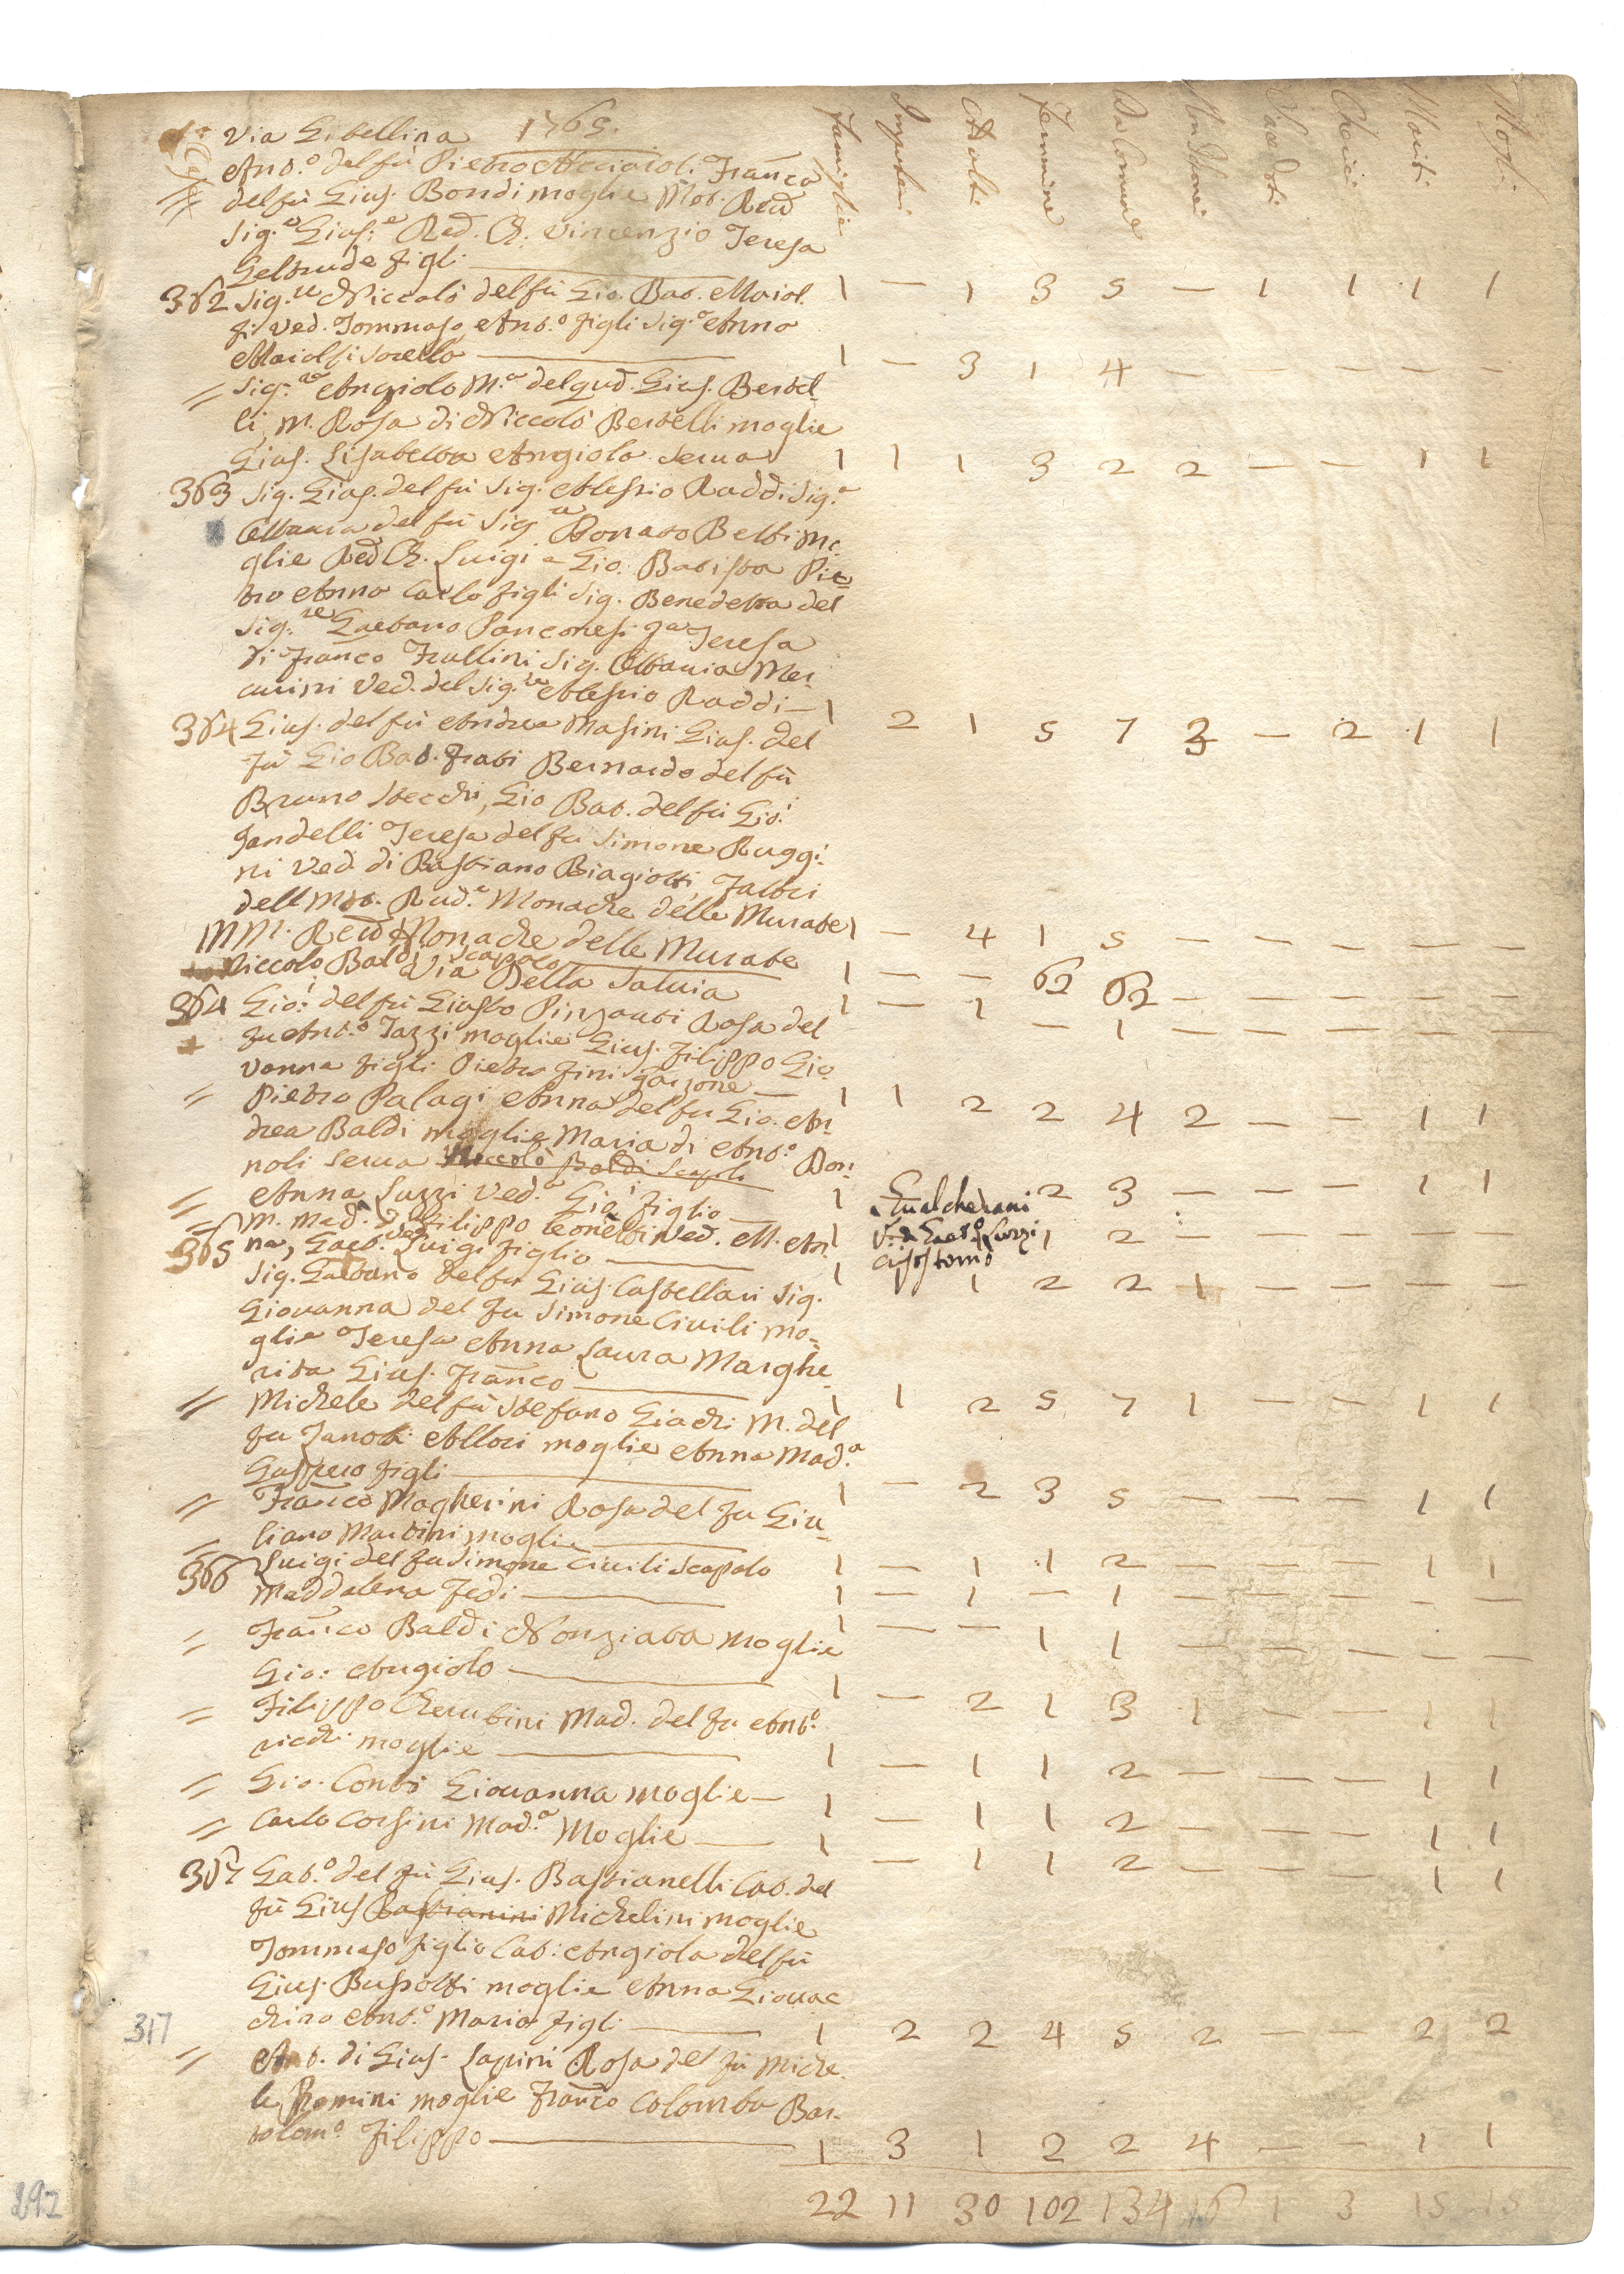 Via Gibellina 1765.
Famiglie Impuberi Adulti Femmine Da Comune Non Idonei Sacerdoti Cherici Mariti Mogli
Ant.º del fù Pietro Acciaioli Franca
= del fù Gius. Bondi moglie Mol. Red
Sig.ª Gius.ª Red. Ch. Vincenzio Teresa
Geltrude figli — 1 — 1 3 5 — 1 1 1 1
362 Sig.re Niccolò del fù Gio. Bat. Maiol.
fi Ved. Tommaso, Ant.º figli Sig.ª Anna
Maiolfi sorella — 1 — 3 1 4 — — — — —
= Sig.re Angiolo M.ª del qud. Gius. Bertel
li, M. Rosa di Niccolò Bertelli moglie
Gius. Lisabetta Angiola serua 1 1 1 3 2 2 — — 1 1
363 Sig. Gius. del fù Sig. Alessio Raddi Sig.ª
Ottauia del fù Sig. Donato Betti mo
glie Red Ch. Luigi e Gio. Batista Pie
tro Anna Carlo figli Sig. Benedetta del
Sig.re Gaetano Panconesi Teresa
di Franco Frullini Sig. Ottauia Mer
curini Ved. del Sig.re Alessio Raddi — 1 2 1 5 7 3 — 2 1 1
364 Gius. del fù Andrea Masini Gius. del
fù Gio Bat. Frati Bernardo del fù
Bruno Stecchi, Gio Bat. del fù Gio:
Jandelli Teresa del fù Simone Ruggi
ni Ved. di Bastiano Biagiotti, Fattori
dell Mto. Rud.e Monache delle Murate 1 — 4 1 5 — — — — —
MM. Reud Monache delle Murate 1 — — 62 62 — — — — —
Niccolo Baldi Scapolo 1 — 1 — 1 — — — — —
Via Della Saluia
364 Gio: del fù Giusto Pinzauti Rosa del
fu Ant.º Tazzi moglie Gius. Filippo Gio
vanna figli Pietro Fini garzone — 1 1 2 2 4 2 — — 1 1
= Pietro Palagi Anna del fu Gio. An
drea Baldi moglie Maria di Ant.º Don
noli serua Niccolò Baldi Scapoli 1 2 3 — — — 1 1
= Anna Luzzi Ved.ª Gio: figlio — 1 Gualcherani
V.ª di Gaet.º Luzzi
Crisostomo 1 2 — — — — —
365 M. Mad.ª di Filippo Leonetti Ved. M. An
na, Gaet.º Luigi figlio — 1 1 2 2 1 — — — —
Sig. Gaetano del fu Gius. Castellari Sig.
Giouanna del fu Simone Ciuili mo
glie Teresa Anna Laura Marghe
rita Gius. Franco — 1 1 2 5 7 1 — — 1 1
= Michele del fù Stefano Giachi M. del
fu Zanobi Allori moglie Anna Mad.ª
Gaspero figli — 1 — 2 3 5 — — — 1 1
= Franco Magherini Rosa del fu Giu
liano Martini moglie — 1 — 1 1 2 — — — 1 1
= Luigi del fu Simone Ciuili Scapolo 1 — 1 — 1 — — — — —
366 Maddalena Fedi — 1 — — 1 1 — — — — —
= Franco Baldi Nonziata moglie
Gio: Angiolo — 1 — 2 1 3 1 — — 1 1
= Filippo Cherubini Mad. del fu Ant.º
richi moglie — 1 — 1 1 2 — — — 1 1
= Gio. Conti Giouanna moglie — 1 — 1 1 2 — — — 1 1
= Carlo Corsini Mad.ª Moglie — 1 — 1 1 2 — — — 1 1
367 Gat.º del fù Gius. Bastianelli Cat. del
fù Gius Bastianini Michelini moglie
Tommaso figlio Cat: Angiola del fù
Gius. Bussotti moglie Anna Giouac
chino Ant.º Maria figli — 1 2 2 4 5 2 — — 2 2
317
= Ant. di Gius. Lapini Rosa del fù Miche
le Romini moglie Franco Colomba Bar
tolom.º Filippo — 1 3 1 2 2 4 — — 1 1
22 11 30 102 134 16 1 3 15 15
297